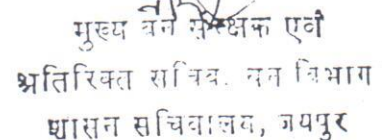 मुख्य वन संरक्षक एवं
अतिरिक्त सचिव. वन विभाग
शासन सचिवालय, जयपुर